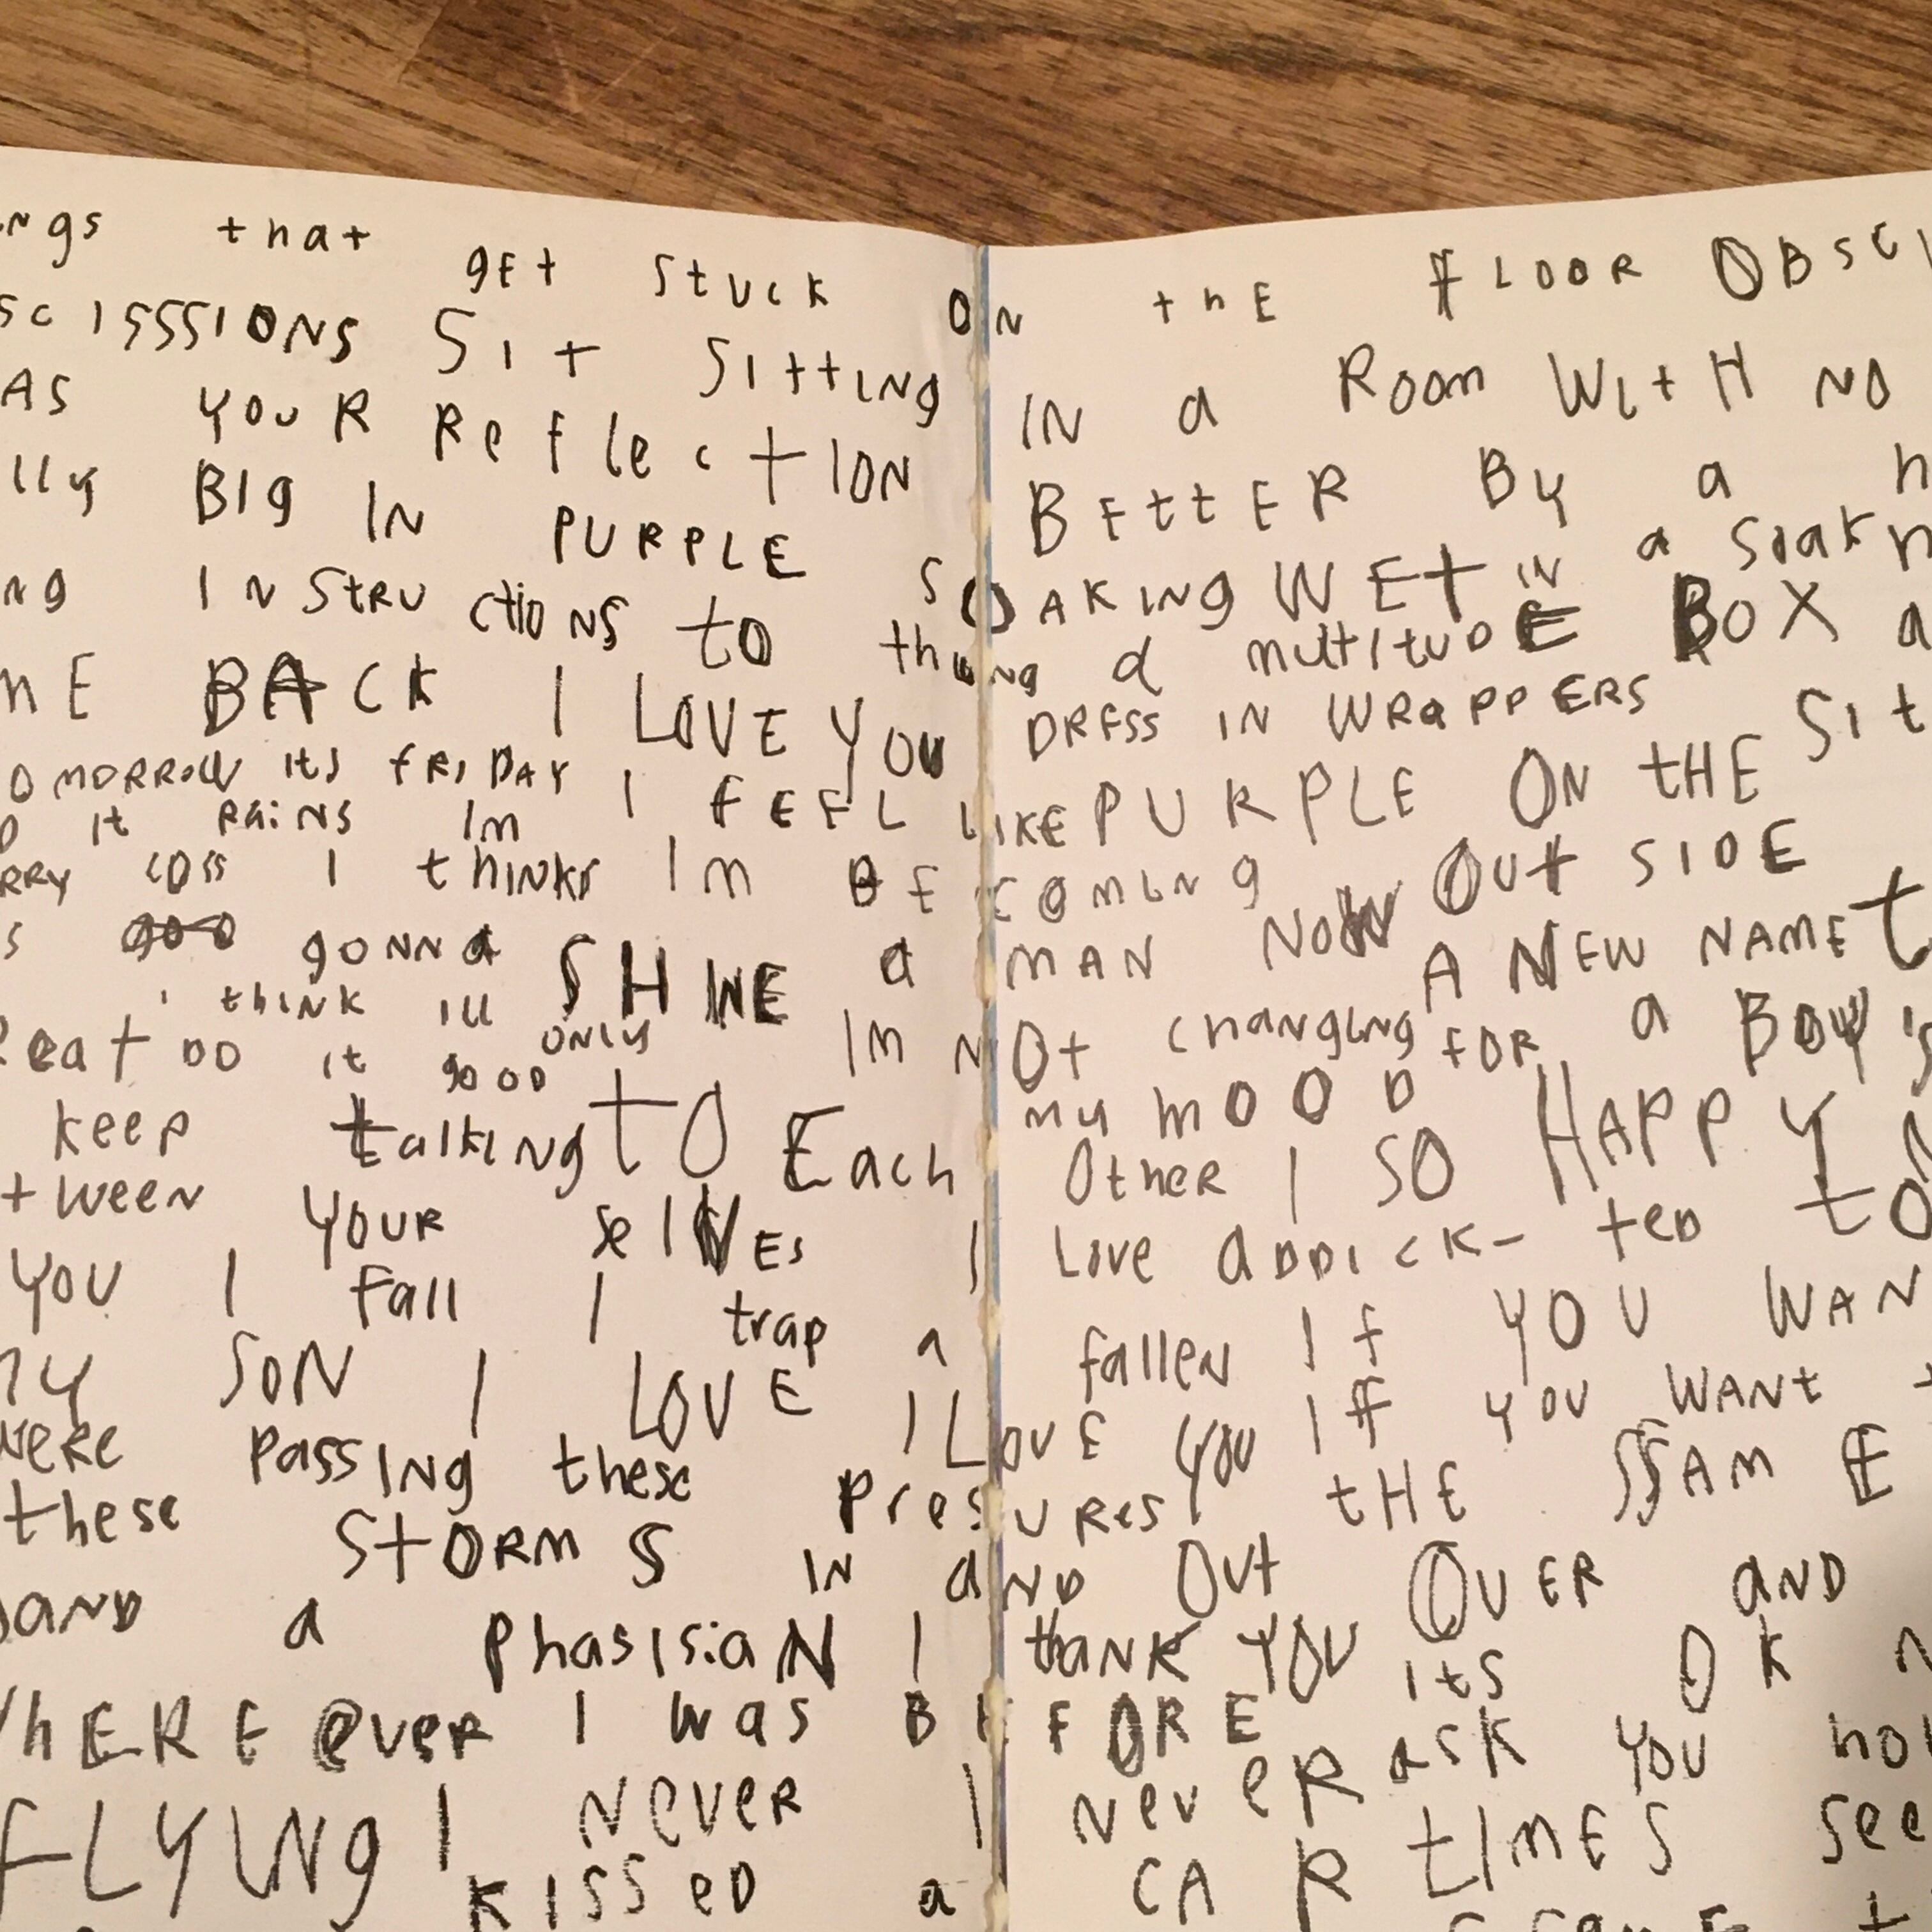 ngs that gEt stuck ON thE FLOOR OBSC
SCISSSIONS Sit Sitting IN a ROOM WitH NO
AS YOUR ReflectION BEttER BY a
lly BIg IN PURPLE SOAKINg WEt IN a
Ng INStRUctiONS to thing a multituDE BOX a
mE BACK I LOVE YOU DRESS IN WRaPPERS Sit
OMORROW ItS fRIDAY I FEEL LIKE PURPLE ON tHE
it RaiNS Im
RRY I thINKs Im BECOMINg NOW Out SIDE
S gONNa SHINE a MAN A NEW NAME t
I thINK ILL ONLY Im NOt chaNgINg FOR a BOY
eat DO it gOOD my mOOD HAPPY
keep talkINg tO Each OtheR I SO
tweeN YOUR selVES I Love aDDICK- teD tO
YOU I fall I trap a falleN If YOU WAN
my SON I LOVE I LOVE YOU If YOU WANt
WeRe passINg these presURes tHE SSAM E
these StORMS IN aND Out OVER aND
aND a PhasIsiaN I thaNK YOU its OK
hERE eveR I was BEFORE
FLYINg I NeveR I NeveR ask YOU
KISSeD a CAR tIMES see